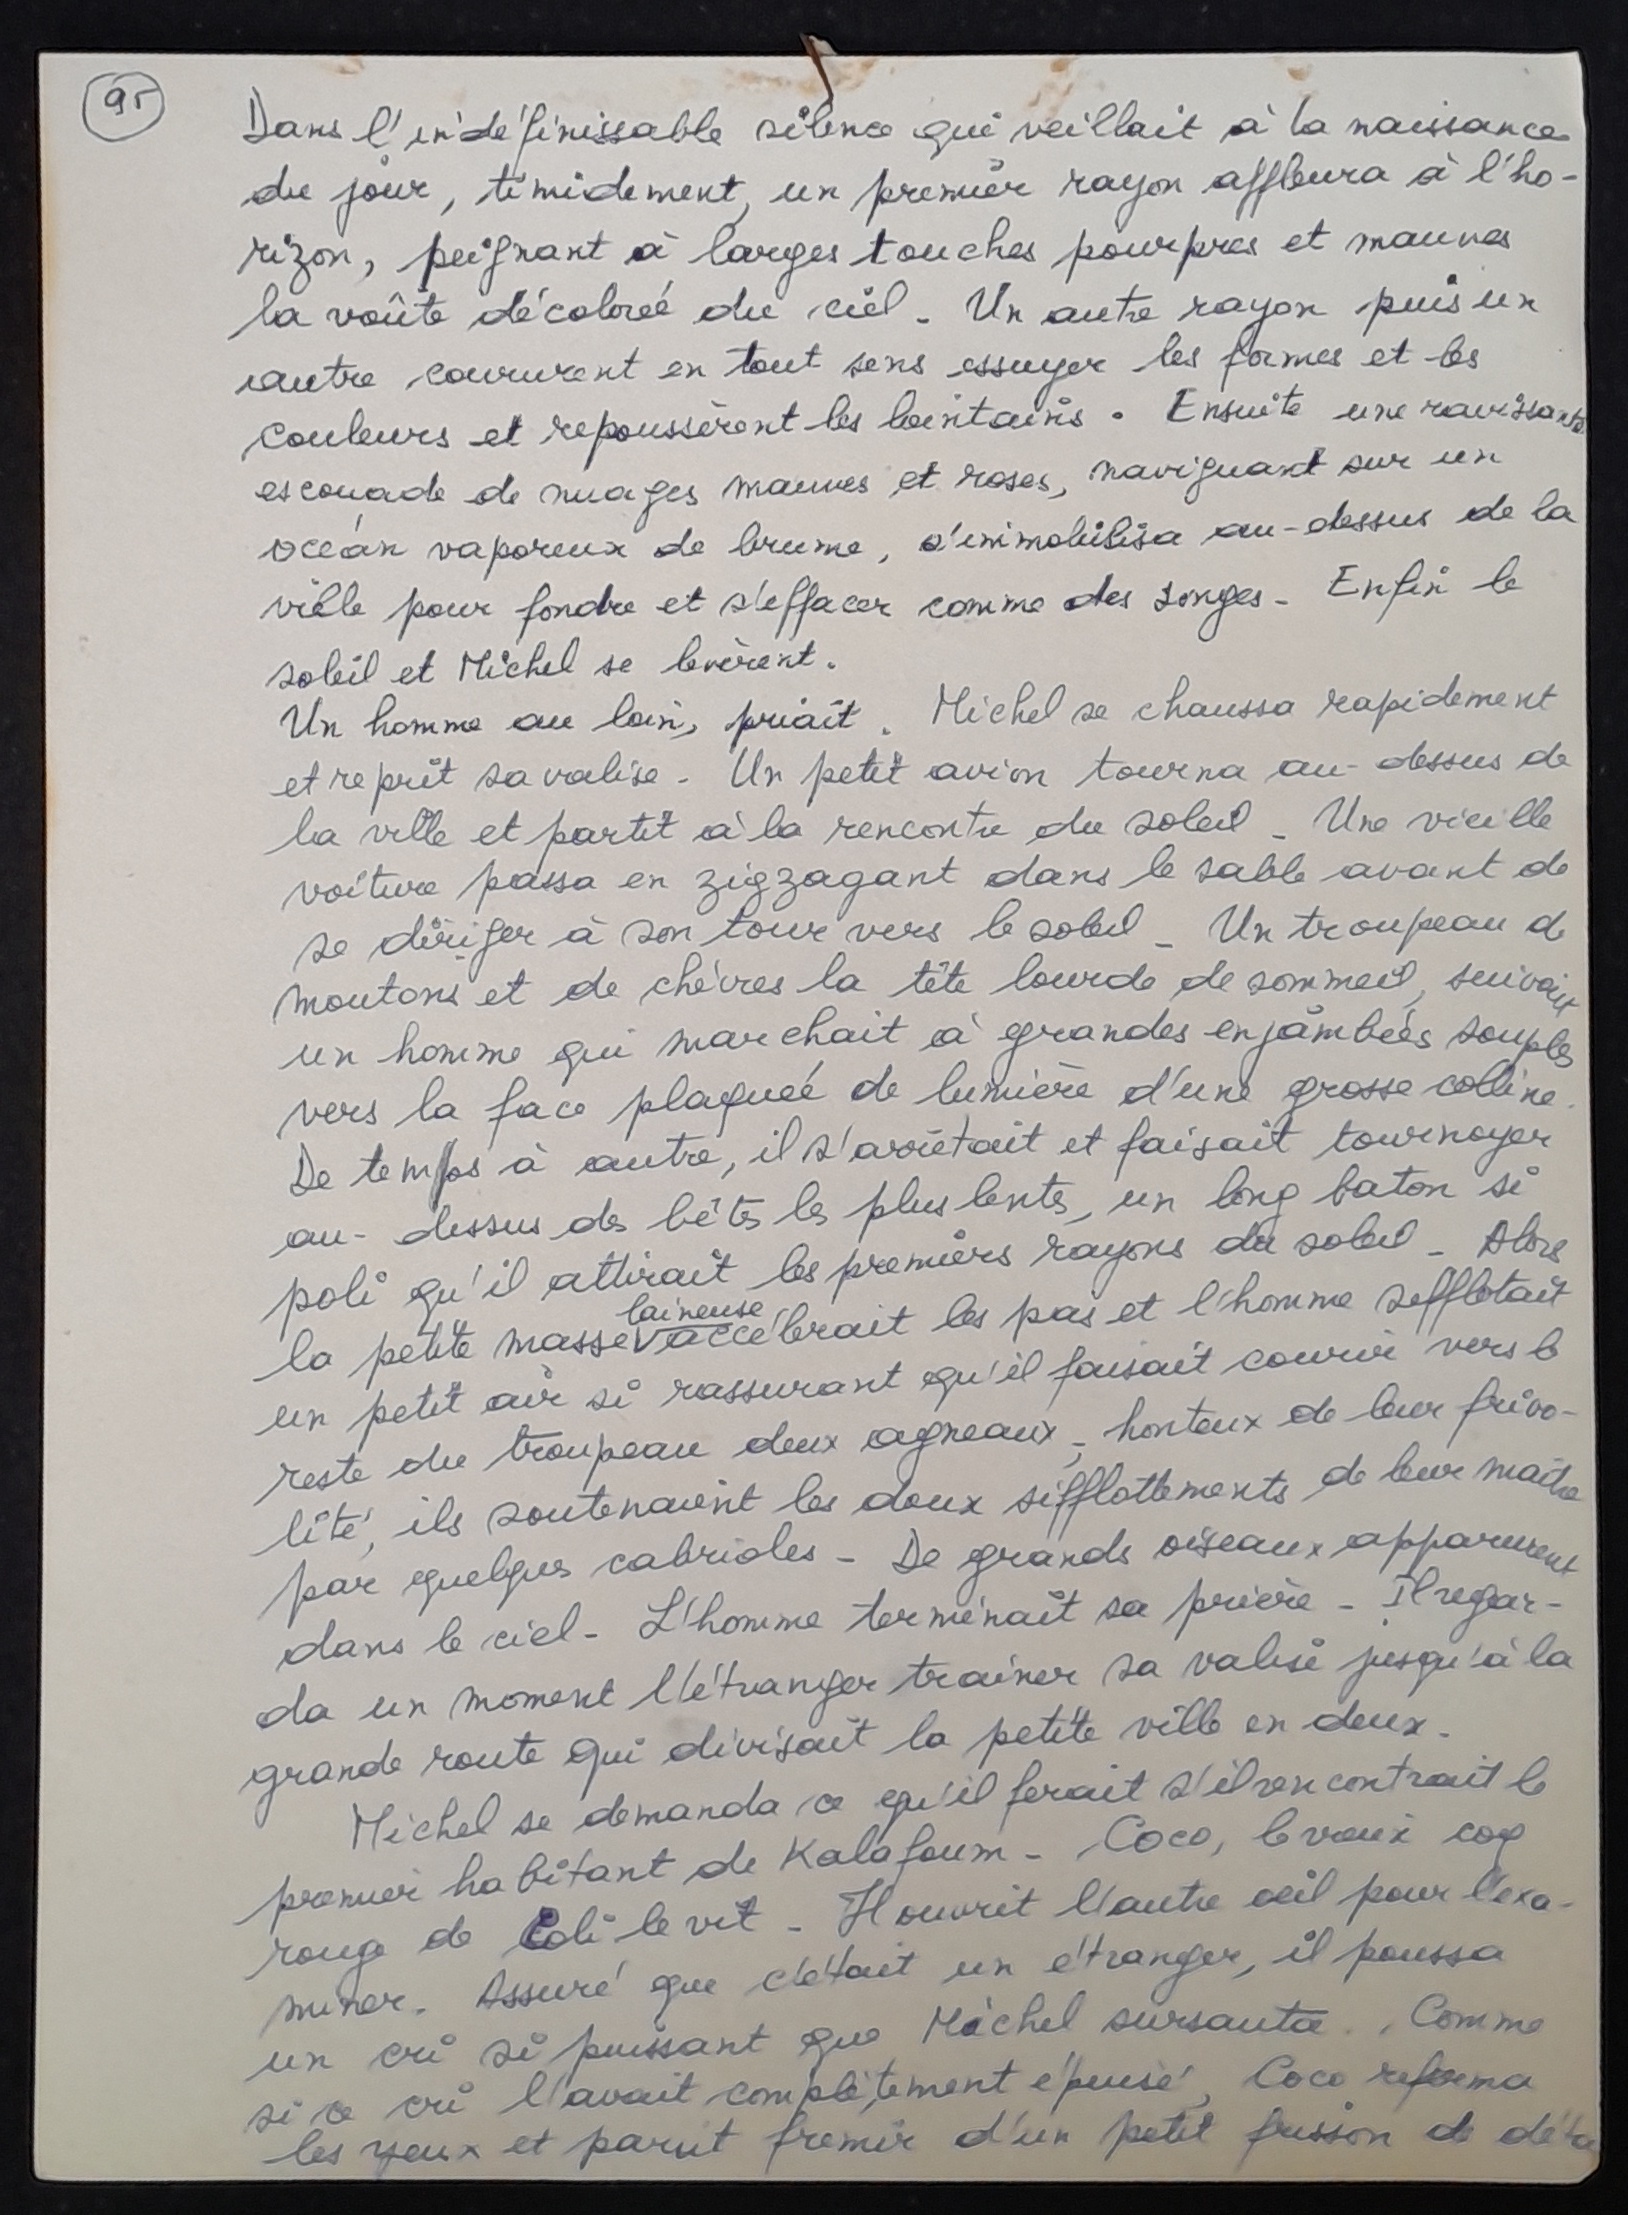 95
Dans l'indéfinissable silence qui veillait à la naissance
du jour, timidement, un premier rayon affleura à l'ho-
rizon, peignant à larges touches pourpres et mauves
la voûte décolorée du ciel - Un autre rayon puis un
autre coururent en tout sens essuyer les formes et les
couleurs et repoussèrent les lointains. Ensuite une ravissante
escouade de nuages mauves et roses, naviguant sur un
océan vaporeux de brume, s'immobilisa au-dessus de la
ville pour fondre et s'effacer comme des songes - Enfin le
soleil et Michel se levèrent.
Un homme au loin, priait. Michel se chaussa rapidement
et reprit sa valise - Un petit avion tourna au-dessus de
la ville et partit à la rencontre du soleil - Une vieille
voiture passa en zigzagant dans le sable avant de
se diriger à son tour vers le soleil - Un troupeau de
moutons et de chèvres la tête lourde de sommeil, suivait
un homme qui marchait à grandes enjambées souples
vers la face plaquée de lumière d'une grosse colline.
De temps à autre, il s'arrêtait et faisait tournoyer
au-dessus des bêtes les plus lentes, un long baton si
poli qu'il attirait les premiers rayons du soleil - Alors
la petite masse laineuse accélérait les pas et l'homme sifflotait
un petit air si rassurant qu'il faisait courir vers le
reste du troupeau deux agneaux, honteux de leur frivo-
lité, ils soutenaient les doux sifflottements de leur maître
par quelques cabrioles - De grands oiseaux apparurent
dans le ciel - L'homme terminait sa prière - Il regar-
da un moment l'étranger trainer sa valise jusqu'à la
grande route qui divisait la petite ville en deux -
Michel se demanda ce qu'il ferait s'il rencontrait le
premier habitant de Kalafoum - Coco, le vieux coq
rouge de Coli le vit - Il ouvrit l'autre oeil pour l'exa-
miner. Assuré que c'était un étranger, il poussa
un cri si puissant que Michel sursauta. Comme
si ce cri l'avait complètement épuisé, Coco referma
les yeux et parut fremir d'un petit frisson de